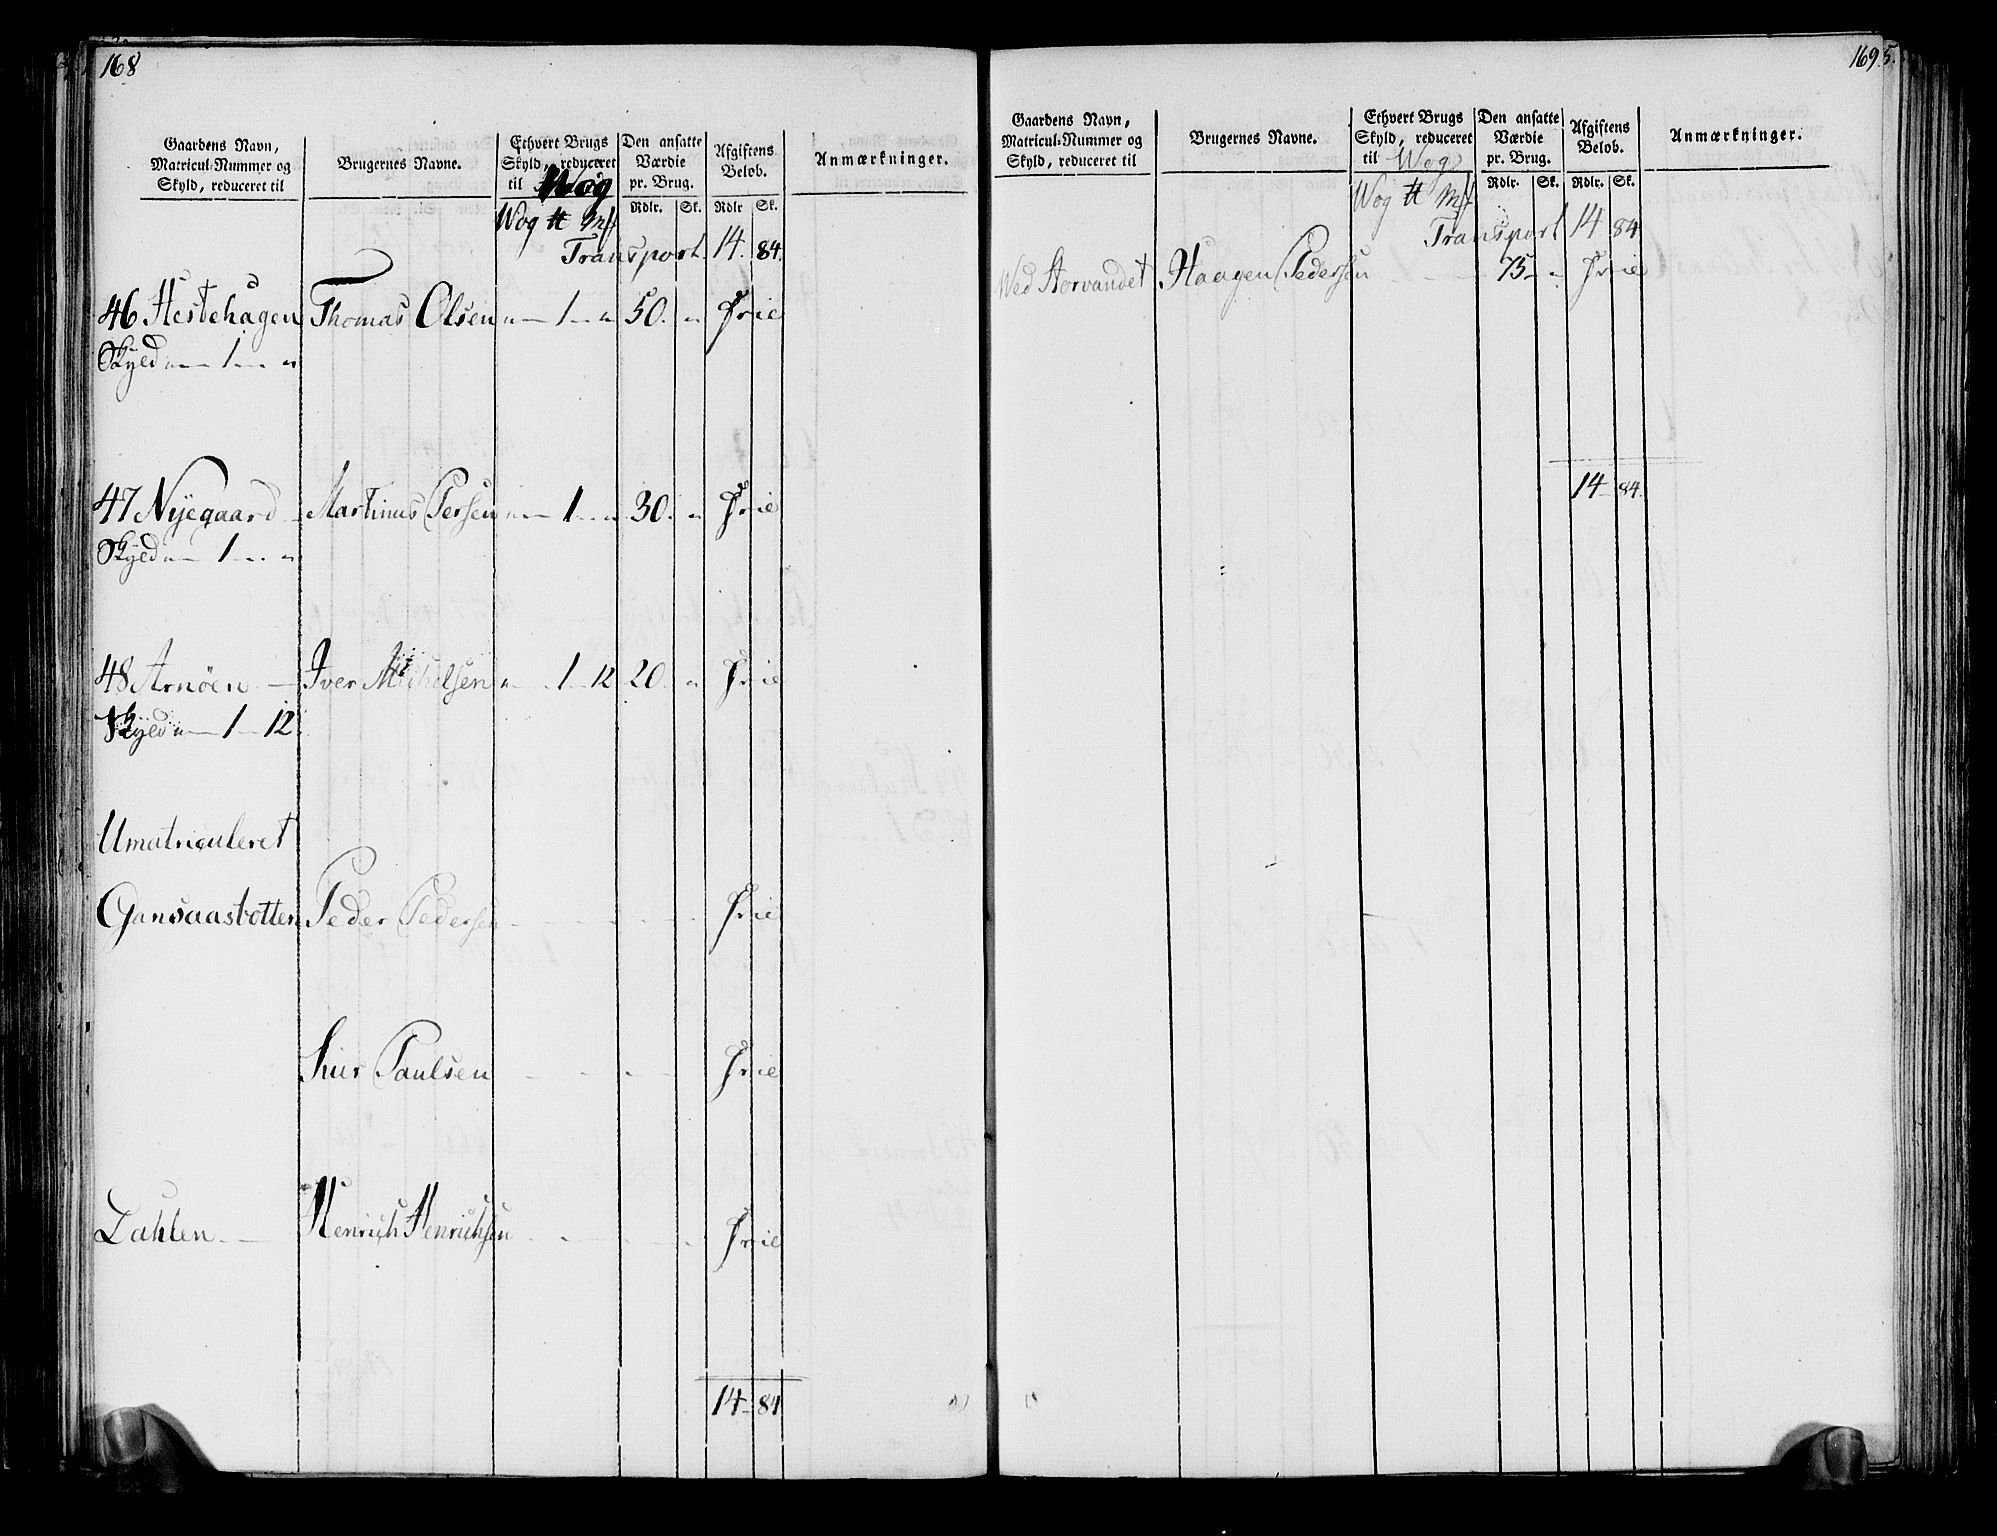 168
Gaardens Navn, Matricul-Nummer og Skyld, reduceret til | Brugernes Navne. | Ethvert Brugs Skyld, reduceret til Wog | Den ansatte Værdie pr. Brug. | Afgiftens Beløb. | Anmærkninger.
Wog ℔ Mk | Rdlr. | Sk. | Rdlr | Sk.
Transport 14. 84.
46 Hestehagen Thomas Olsen " — 1 — " 50. " Frie
Skyld " — 1 — "
47 Nyegaard Martinus Persen " — 1 — " 30. " Frie
Skyld " — 1 — "
48 Arnøen — Iver Michelsen " — 1 — 12 20. " Frie
Skyld " — 1 — 12
Umatriculeret
Gansaasbotten Peder Pedersen - - - - Frie
Siur Paulsen - - - - Frie
Dahlen — Henrich Henrichsen - - - - Frie
14 — 84
169.
5.
Gaardens Navn, Matricul-Nummer og Skyld, reduceret til | Brugernes Navne. | Ethvert Brugs Skyld, reduceret til Wog | Den ansatte Værdie pr. Brug. | Afgiftens Beløb. | Anmærkninger.
Wog ℔ Mk | Rdlr. | Sk. | Rdlr. | Sk.
Transport 14 84
Wed Storvandet Haagen Pedersen — — 75 — " Frie
14 — 84.